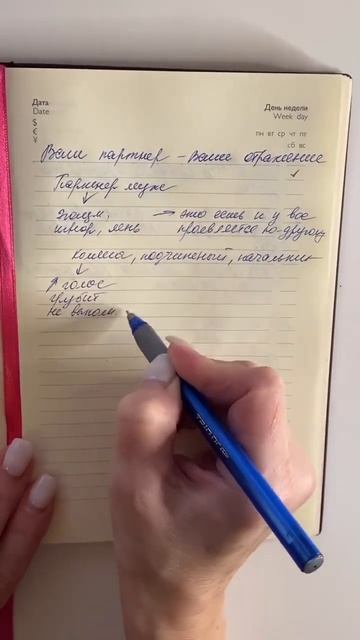 Дата
Date
День недели
Week day
$
€
¥
пн вт ср чт пт
сб вс
Ваш партнер – Ваше отражение
Партнер муж
эгоизм, → это есть и у вас
игнор, лень проявляется по-другому
Коллега, подчиненный, начальник
↑ голос
грубит
не выполн